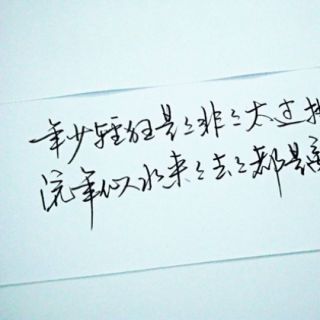 年少轻狂是是非非太过
流年似水来来去去都是